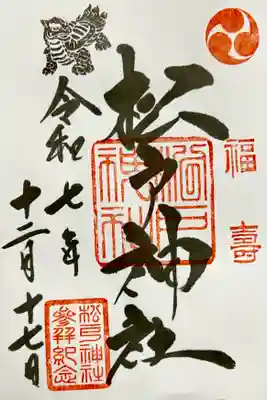 福壽
松戸神社
松戸神社
令和七年
十二月十七日
松戸神社
参拝紀念